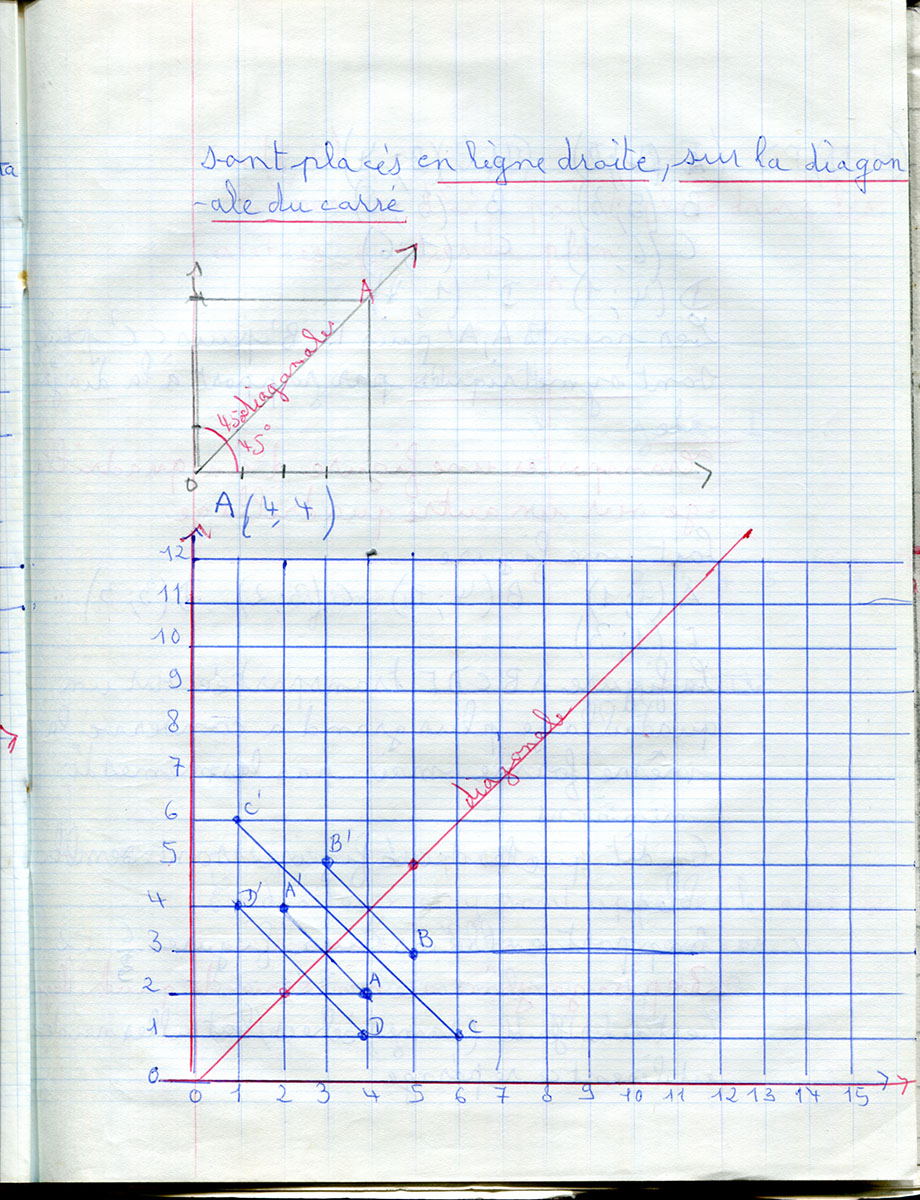 sont placés en ligne droite, sur la diagon
-ale du carré
A
diagonales
45°
45°
0
A (4, 4)
12
11
10
9
8
diagonale
7
6
C'
5
B'
4
D'
A'
3
B
2
A
1
D
C
0
0 1 2 3 4 5 6 7 8 9 10 11 12 13 14 15